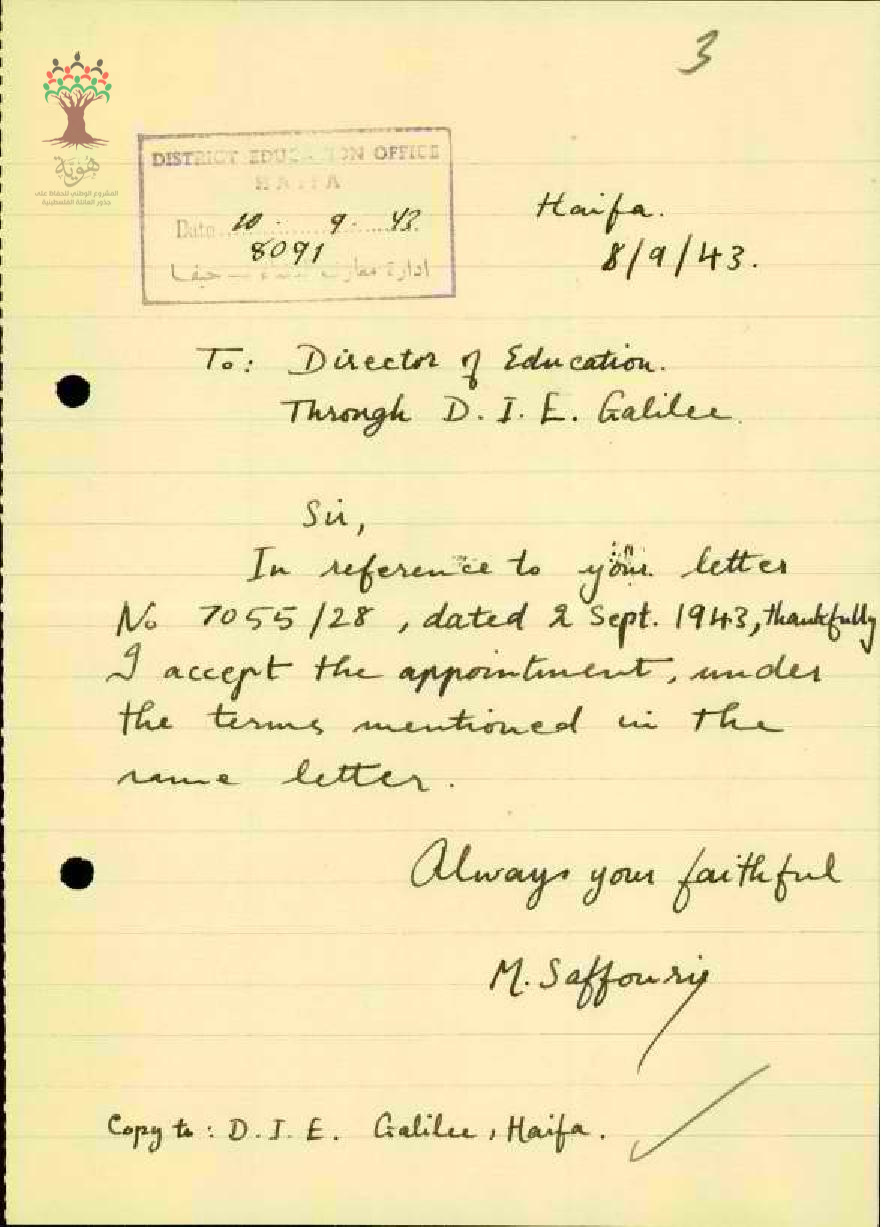 3
هوية
المشروع الوطني للحفاظ على
جذور العائلة الفلسطينية
DISTRICT EDUCATION OFFICE
HAIFA
Date 10. 9. 43.
8091
ادارة معارف حيفا
Haifa.
8/9/43.
To: Director of Education.
Through D. I. E. Galilee.
Sir,
In reference to your letter
No 7055/28, dated 2 Sept. 1943, thankfully
I accept the appointment, under
the terms mentioned in the
same letter.
Always your faithful
M. Saffouriy
Copy to: D. I. E. Galilee, Haifa.